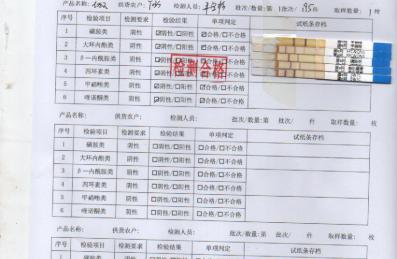 产品名称: 供货农户: 检测人员: 批次/数量:第1批次/ 取样数量: 1 枚
序号 检验项目 检测要求 检验结果 单项判定 试纸条存档
1 磺胺类 阴性 ☑阴性/□阳性 ☑合格/□不合格
2 大环内酯类 阴性 ☑阴性/□阳性 ☑合格/□不合格
3 β一内酰胺类 阴性 ☑阴性/□阳性 ☑合格/□不合格
4 四环素类 阴性 ☑阴性/□阳性 ☑合格/□不合格
5 甲硝唑类 阴性 ☑阴性/□阳性 ☑合格/□不合格
6 喹诺酮类 阴性 ☑阴性/□阳性 ☑合格/□不合格
检测合格
产品名称: 供货农户: 检测人员: 批次/数量:第 批次/ 件 取样数量: 枚
序号 检验项目 检测要求 检验结果 单项判定 试纸条存档
1 磺胺类 阴性 □阴性/□阳性 □合格/□不合格
2 大环内酯类 阴性 □阴性/□阳性 □合格/□不合格
3 β一内酰胺类 阴性 □阴性/□阳性 □合格/□不合格
4 四环素类 阴性 □阴性/□阳性 □合格/□不合格
5 甲硝唑类 阴性 □阴性/□阳性 □合格/□不合格
6 喹诺酮类 阴性 □阴性/□阳性 □合格/□不合格
产品名称: 供货农户: 检测人员: 批次/数量:第 批次/ 件 取样数量: 枚
序号 检验项目 检测要求 检验结果 单项判定 试纸条存档
1 磺胺类 阴性 □阴性/□阳性 □合格/□不合格